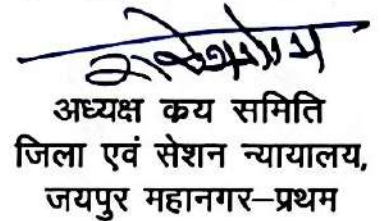 अध्यक्ष कय समिति
जिला एवं सेशन न्यायालय,
जयपुर महानगर–प्रथम